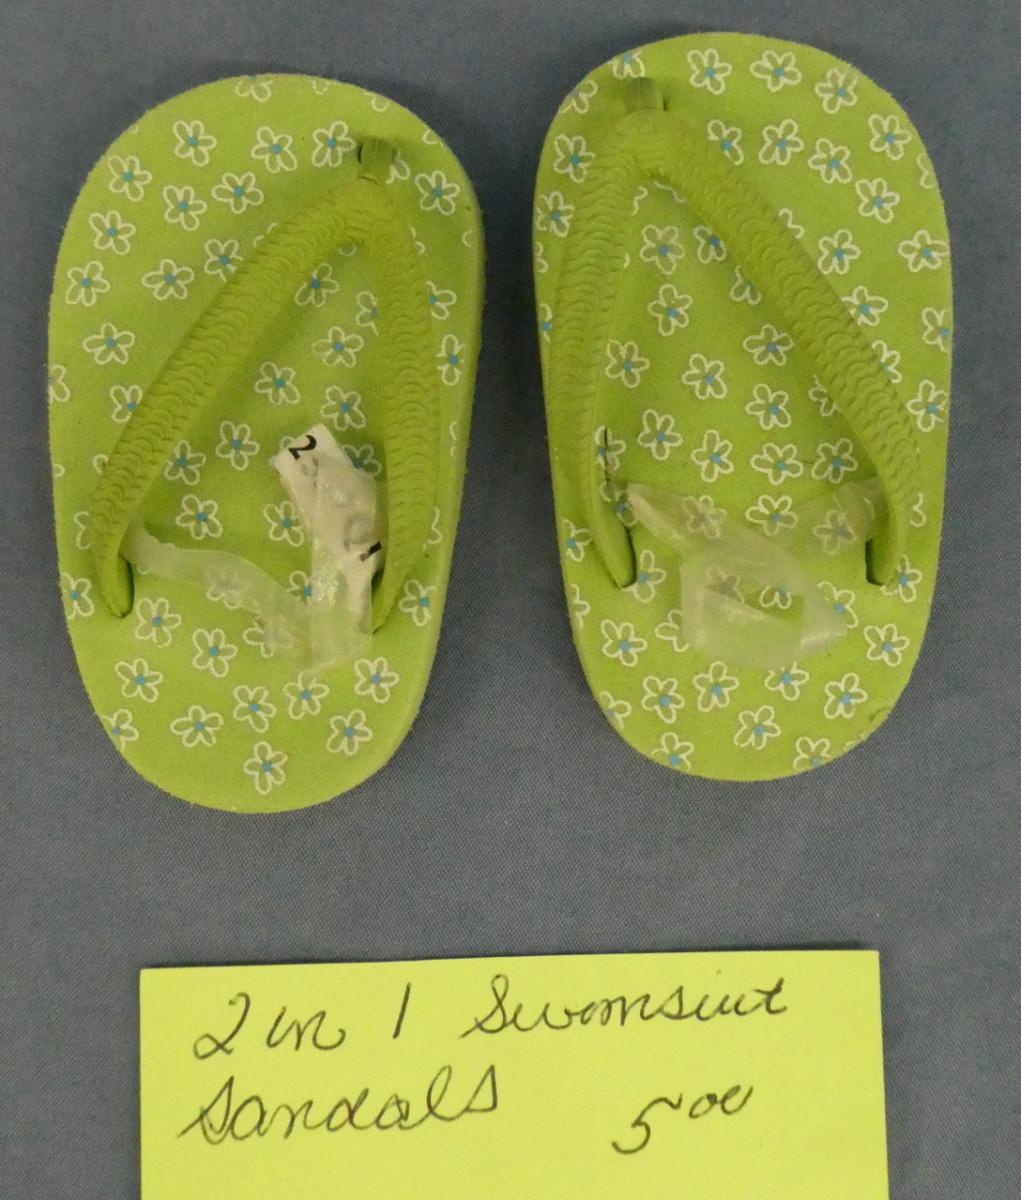 2
2 in 1 Swimsuit
Sandals 5.00